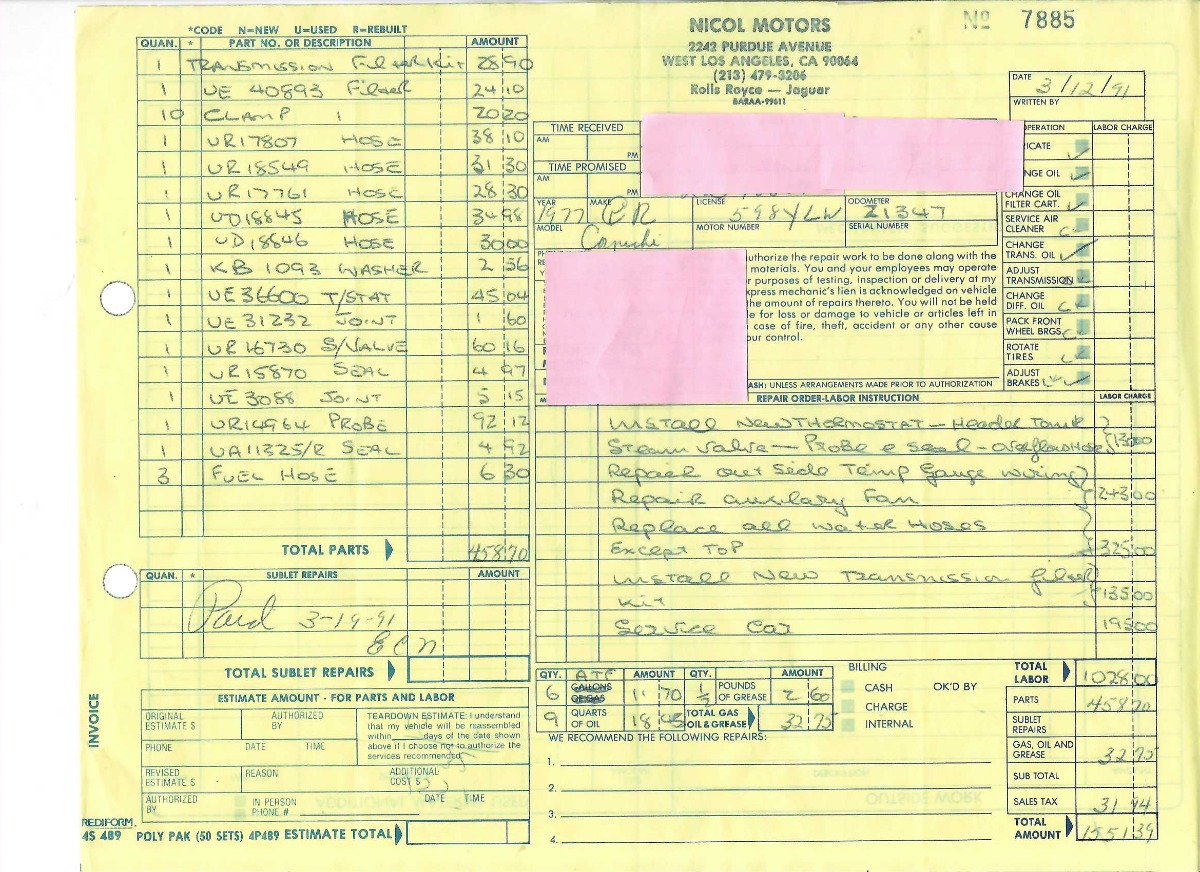 *CODE N=NEW U=USED R=REBUILT
QUAN. * PART NO. OR DESCRIPTION AMOUNT
1 TRANSMISSION Filter Kit 28 90
1 UE 40893 Filter 24 10
10 CLAMP 20 20
1 UR17807 HOSE 38 10
1 UR18549 HOSE 31 30
1 UR17761 HOSE 28 30
1 UD18845 HOSE 34 98
1 UD18846 HOSE 30 00
1 KB 1093 WASHER 2 56
1 UE36600 T/STAT 45 04
1 UE 31232 JOINT 1 60
1 UR16730 S/VALVE 60 16
1 UR15870 SEAL 4 97
1 UE 3088 JOINT 5 15
1 UR14964 PROBE 92 12
1 UA11325/R SEAL 4 92
3 FUEL HOSE 6 30
TOTAL PARTS 458.70
QUAN. * SUBLET REPAIRS AMOUNT
Paid 3-19-91
TOTAL SUBLET REPAIRS
ESTIMATE AMOUNT - FOR PARTS AND LABOR
ORIGINAL ESTIMATE $ AUTHORIZED BY
PHONE DATE TIME
TEARDOWN ESTIMATE: I understand
that my vehicle will be reassembled
within ____ days of the date shown
above if I choose not to authorize the
services recommended.
REVISED ESTIMATE $ REASON ADDITIONAL COST $
AUTHORIZED BY IN PERSON PHONE # DATE TIME
INVOICE
REDIFORM.
4S 489 POLY PAK (50 SETS) 4P489 ESTIMATE TOTAL
NICOL MOTORS
2242 PURDUE AVENUE
WEST LOS ANGELES, CA 90064
(213) 479-3206
Rolls Royce — Jaguar
BARAA-99611
Nº 7885
DATE 3/12/91
WRITTEN BY
TIME RECEIVED
AM PM
TIME PROMISED
AM PM
YEAR 1977 MAKE RR LICENSE 598YLW ODOMETER 21347
MODEL MOTOR NUMBER SERIAL NUMBER
uthorize the repair work to be done along with the
materials. You and your employees may operate
r purposes of testing, inspection or delivery at my
xpress mechanic's lien is acknowledged on vehicle
the amount of repairs thereto. You will not be held
le for loss or damage to vehicle or articles left in
case of fire, theft, accident or any other cause
our control.
ASH: UNLESS ARRANGEMENTS MADE PRIOR TO AUTHORIZATION
PERATION LABOR CHARGE
ICATE
NGE OIL
CHANGE OIL FILTER CART.
SERVICE AIR CLEANER
CHANGE TRANS. OIL
ADJUST TRANSMISSION
CHANGE DIFF. OIL
PACK FRONT WHEEL BRGS.
ROTATE TIRES
ADJUST BRAKES
REPAIR ORDER-LABOR INSTRUCTION LABOR CHARGE
INSTALL NEW THERMOSTAT - Header Tank
Steam Valve - Probe & seal - overflow Hose 130 00
Repair out Side Temp Gauge wiring
Repair auxilary Fan 243 00
Replace all water Hoses
Except Top 325 00
Install New Transmission filter
Kit 135 00
Service Car 195 00
QTY. AMOUNT QTY. AMOUNT
6 ATF GALLONS OF GAS 11 70 1/2 POUNDS OF GREASE 2 60
9 QUARTS OF OIL 18 45 TOTAL GAS OIL & GREASE 32 75
BILLING
CASH OK'D BY
CHARGE
INTERNAL
WE RECOMMEND THE FOLLOWING REPAIRS:
1.
2.
3.
4.
TOTAL LABOR 1028 00
PARTS 458 70
SUBLET REPAIRS
GAS, OIL AND GREASE 32 75
SUB TOTAL
SALES TAX 31 94
TOTAL AMOUNT 1551 39